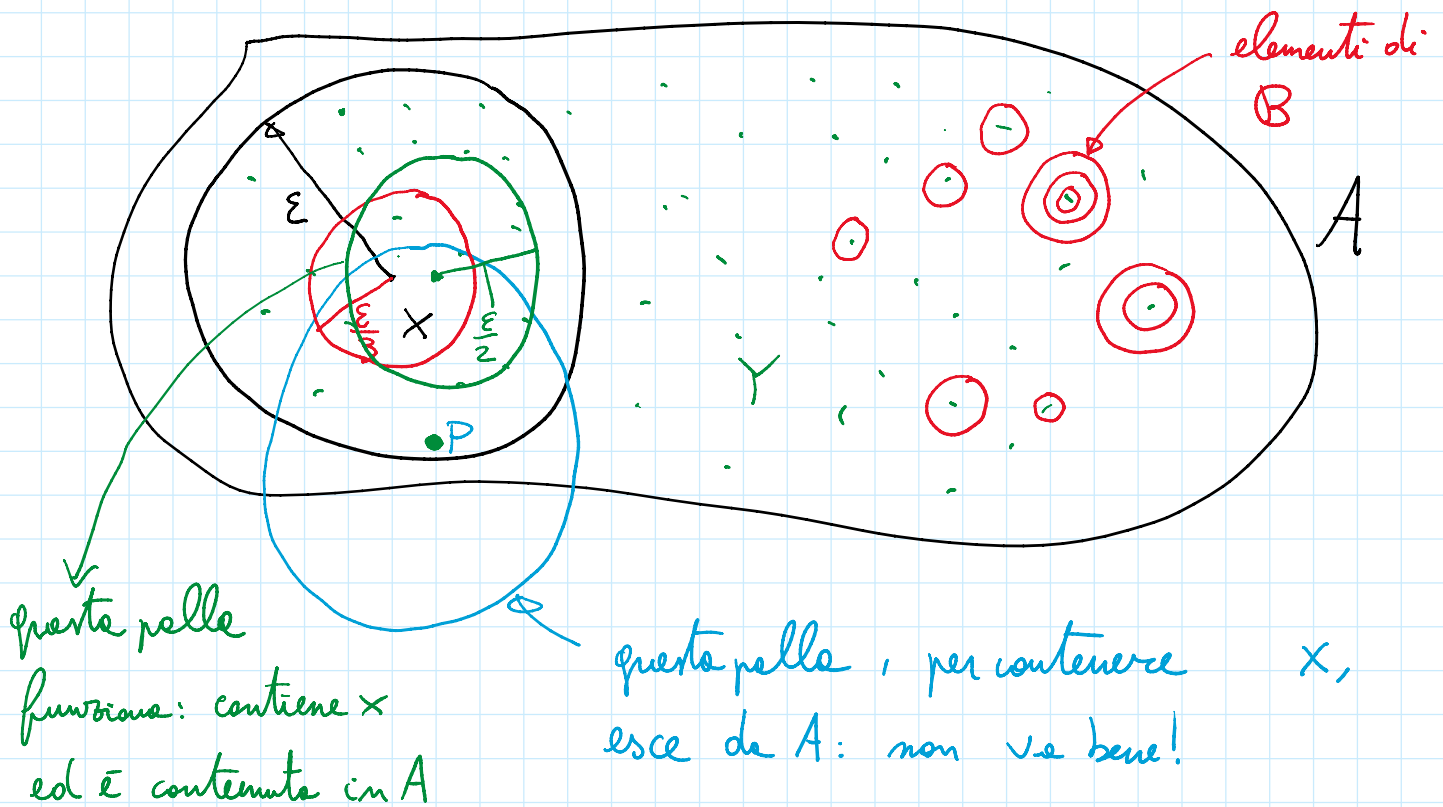 elementi di
B
A
ε
ε/3
X
ε/2
Y
P
questa palla
funziona: contiene x
ed è contenuta in A
questa palla, per contenere x,
esce da A: non va bene!